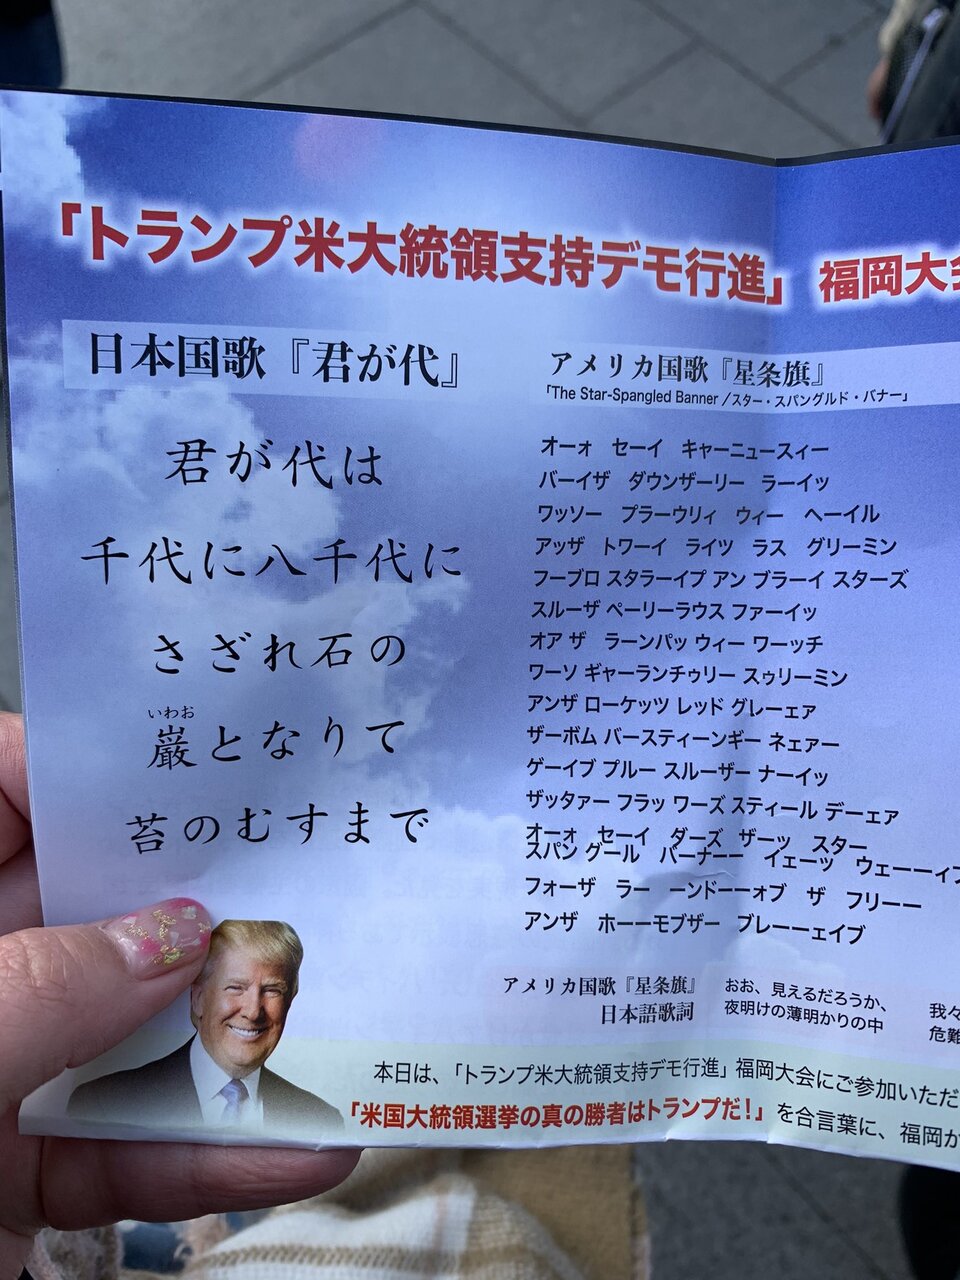 「トランプ米大統領支持デモ行進」 福岡大会
日本国歌『君が代』
君が代は
千代に八千代に
さざれ石の
いわお
巌となりて
苔のむすまで
アメリカ国歌『星条旗』
「The Star-Spangled Banner /スター・スパングルド・バナー」
オーォ セーイ キャーニュースィー
バーイザ ダウンザーリー ラーイッ
ワッソー プラーウリィ ウィー ヘーイル
アッザ トワーイ ライツ ラス グリーミン
フーブロ スタラーイプ アン ブラーイ スターズ
スルーザ ペーリーラウス ファーイッ
オア ザ ラーンパッ ウィー ワーッチ
ワーソ ギャーランチゥリー スゥリーミン
アンザ ローケッツ レッド グレーェア
ザーボム バースティーンギー ネェアー
ゲーイブ プルー スルーザー ナーイッ
ザッタァー フラッ ワーズ スティール デーェア
オーォ セーイ ダーズ ザーッ スター
スパン グール バーナーー イェーツ ウェーーィブ
フォーザ ラー ーンドーーォブ ザ フリーー
アンザ ホーーモブザー ブレーーェイブ
アメリカ国歌『星条旗』
日本語歌詞
おお、見えるだろうか、
夜明けの薄明かりの中
我々
危難
本日は、「トランプ米大統領支持デモ行進」福岡大会にご参加いただ
「米国大統領選挙の真の勝者はトランプだ！」を合言葉に、福岡か